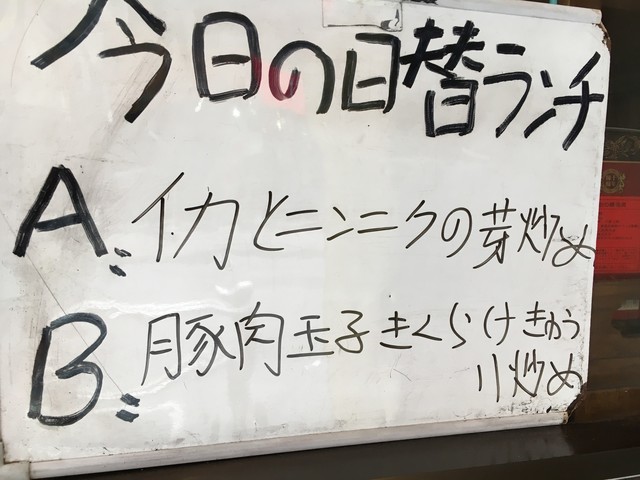 今日の日替ランチ
A: イカとニンニクの芽炒め
B: 豚肉玉子きくらけきゅう
り炒め